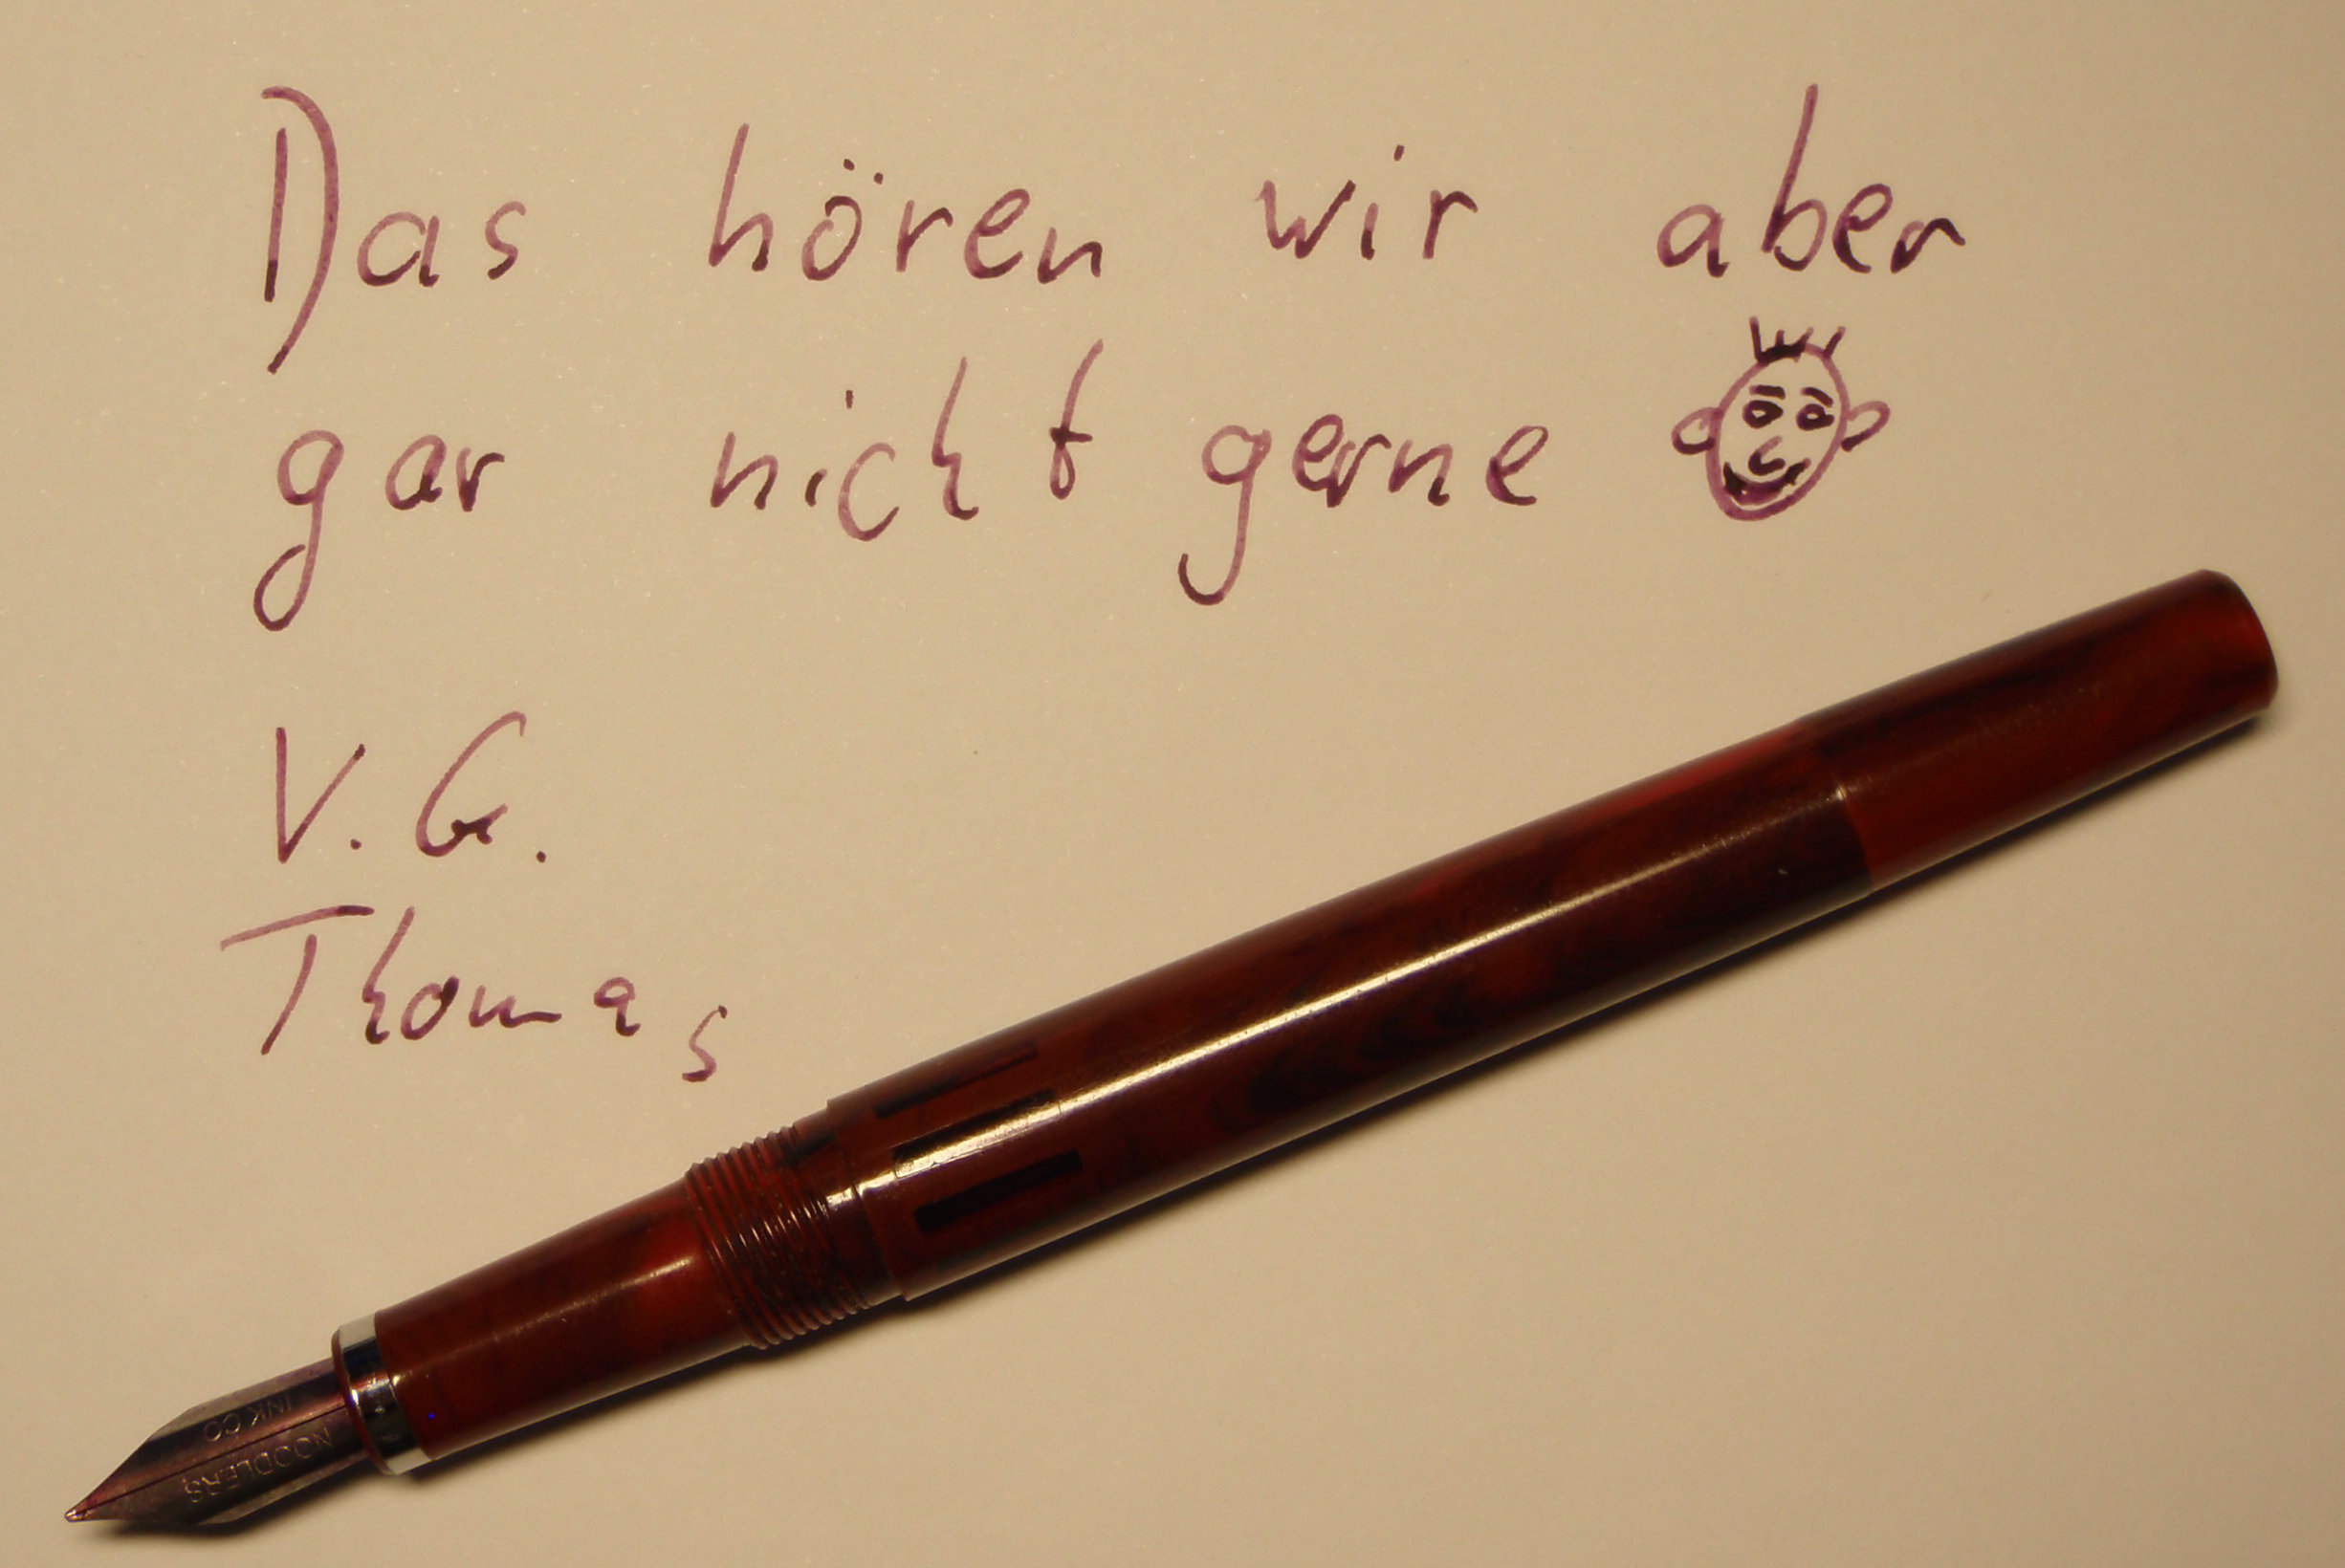 Das hören wir aber
gar nicht gerne
V. G.
Thomas
NOODLERS
INK CO